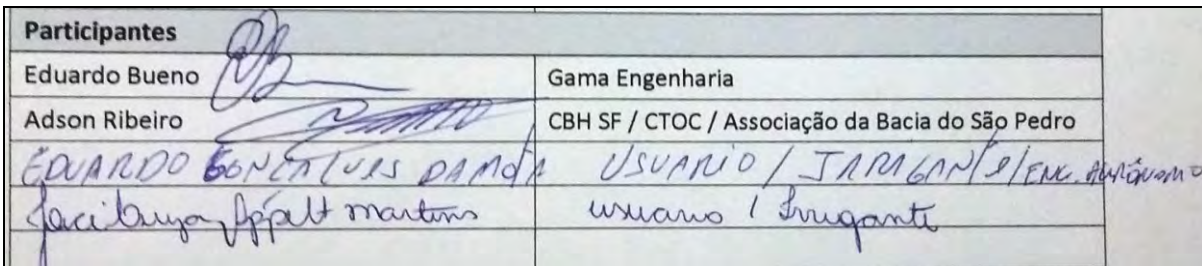 Participantes
Eduardo Bueno Gama Engenharia
Adson Ribeiro CBH SF / CTOC / Associação da Bacia do São Pedro
EDUARDO GONÇALVES USUARIO / ENG. AGRÔNOMO
martins usuario / Irrigante